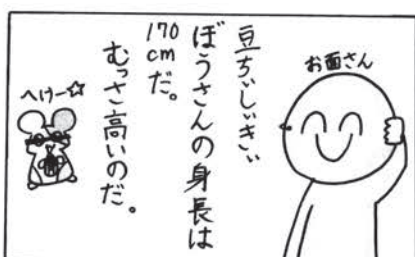 お面さん
豆ちぃしぃきぃ
ぼうさんの身長は
170
cm
だ。
むっさ高いのだ。
へけー☆